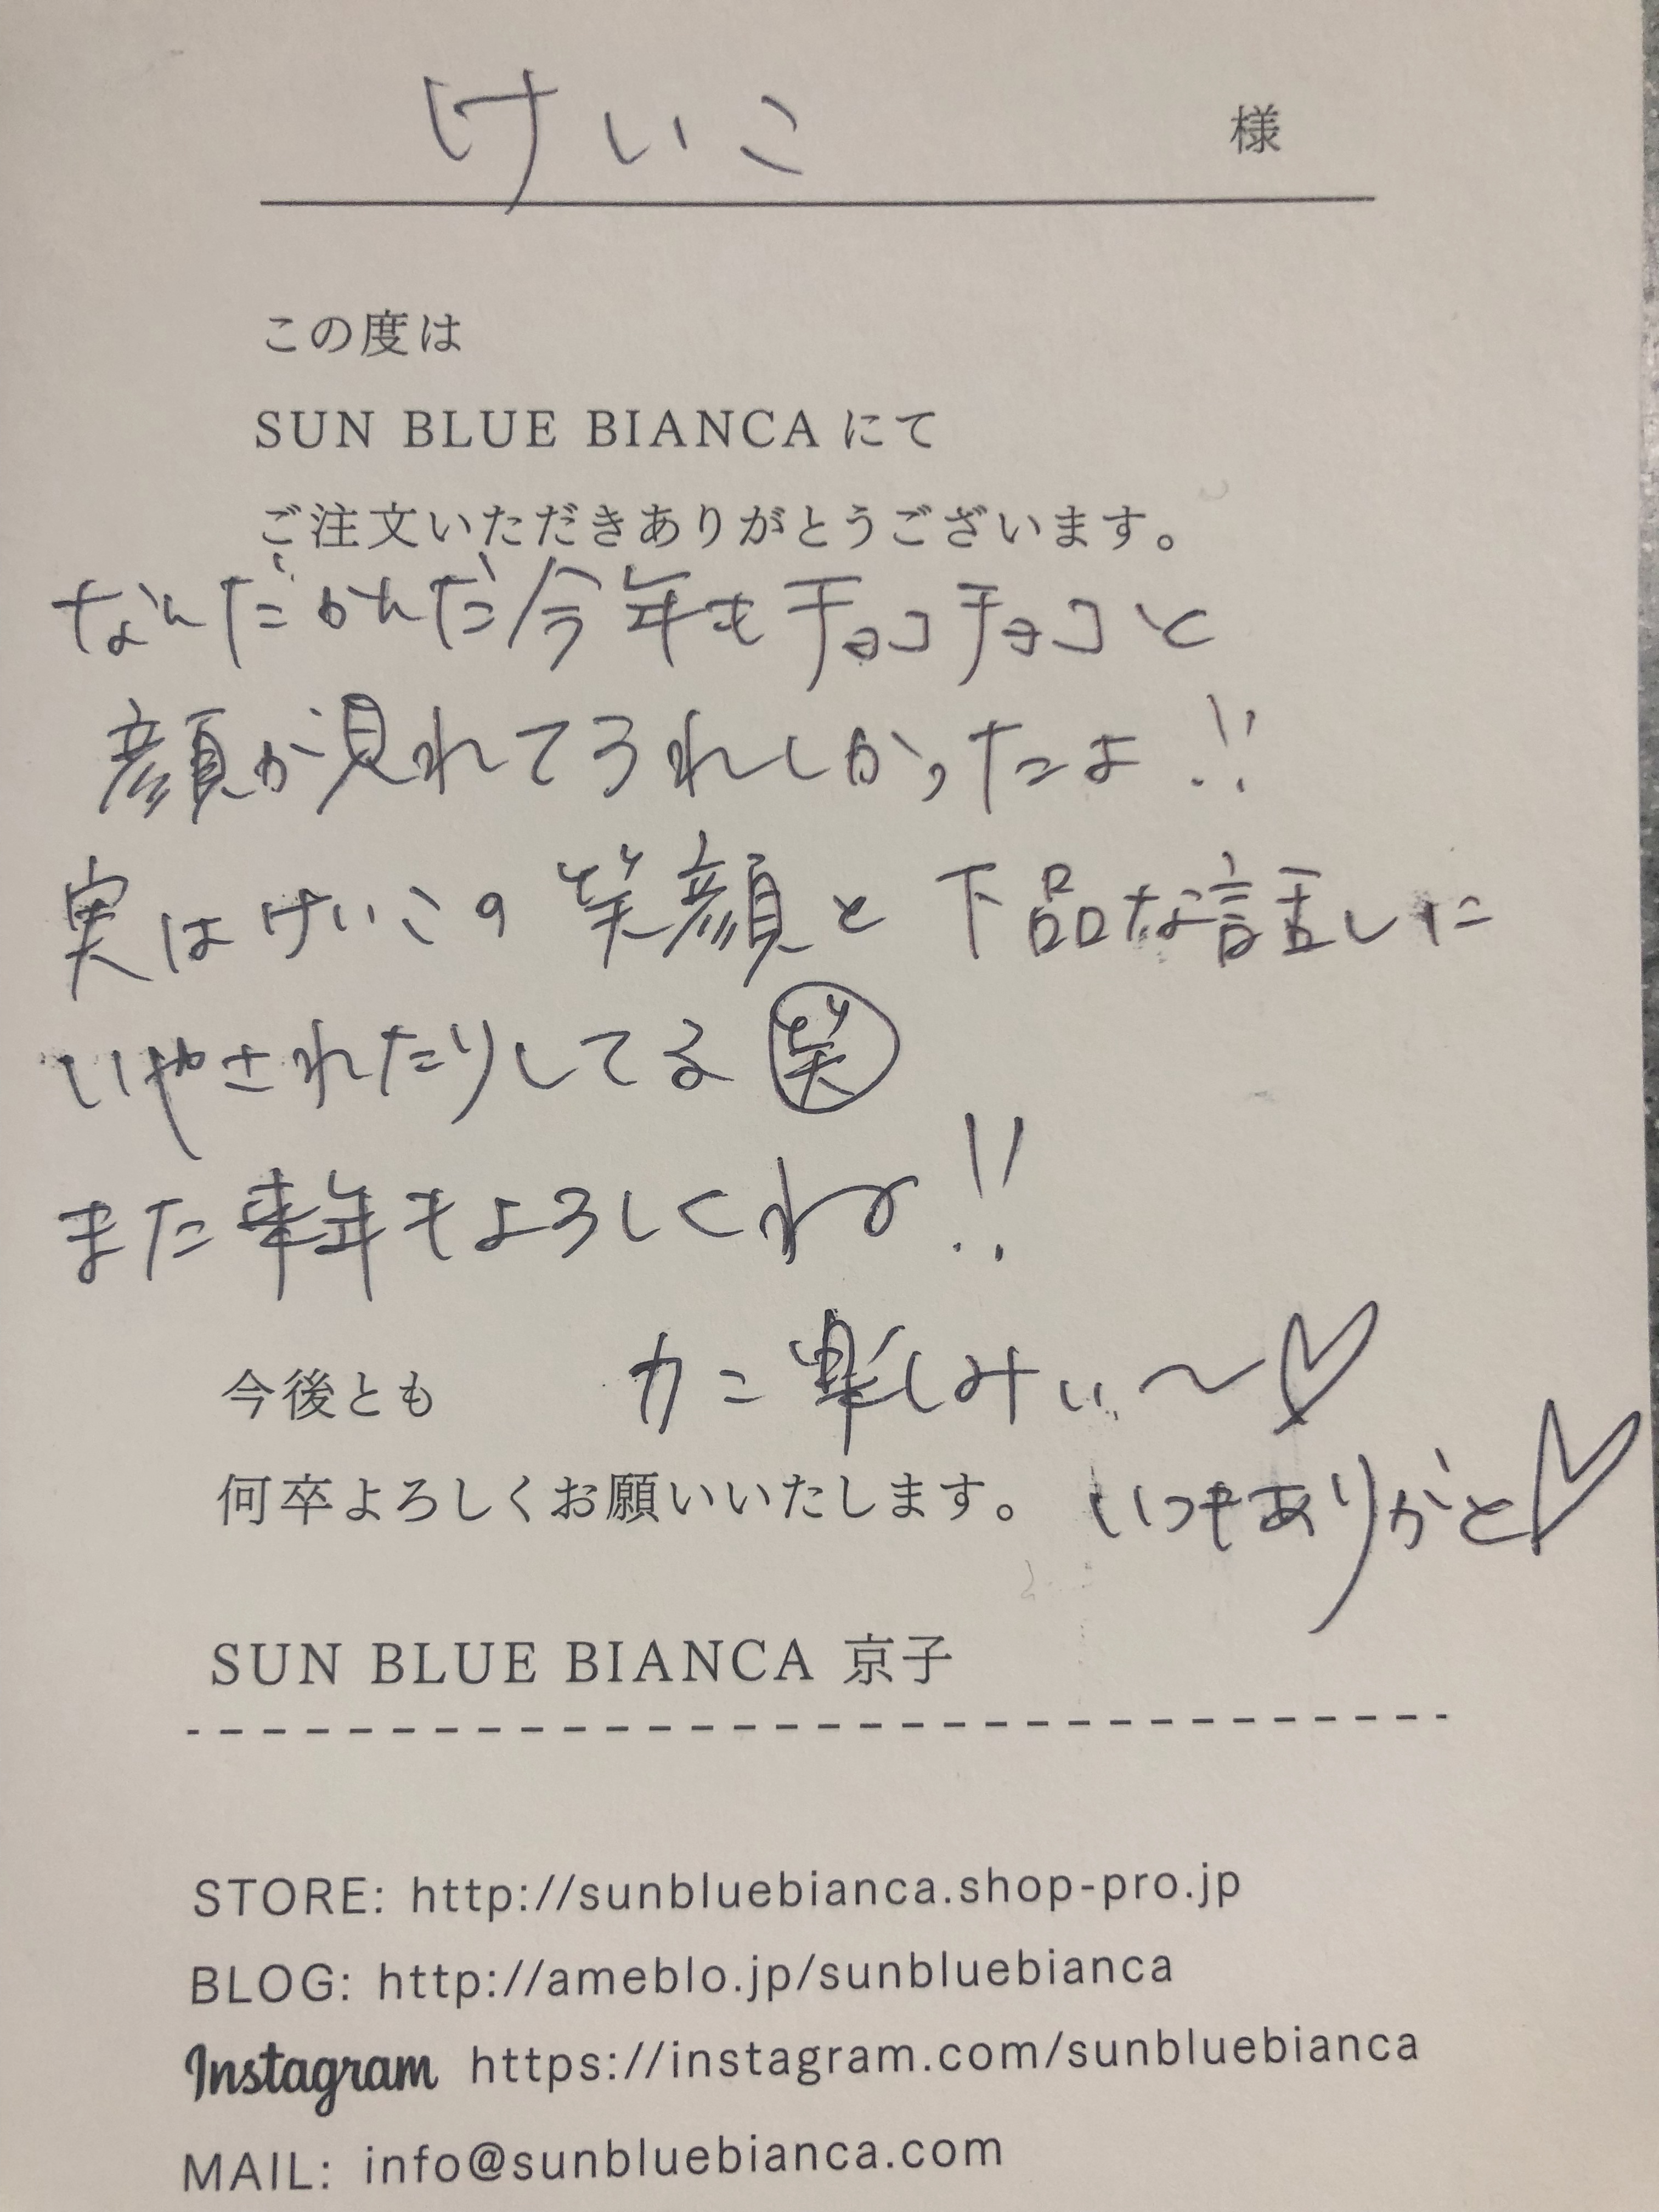 けいこ 様
この度は
SUN BLUE BIANCA にて
ご注文いただきありがとうございます。
なんだかんだ今年もチョコチョコと
顔が見れてうれしかったよ!!
実はけいこの笑顔と下品な話しに
いやされたりしてる㊗笑
また来年もよろしくね!!
今後とも
カニ楽しみぃ〜♡
何卒よろしくお願いいたします。
いつもありがと♡
SUN BLUE BIANCA 京子
STORE: http://sunbluebianca.shop-pro.jp
BLOG: http://ameblo.jp/sunbluebianca
Instagram https://instagram.com/sunbluebianca
MAIL: info@sunbluebianca.com